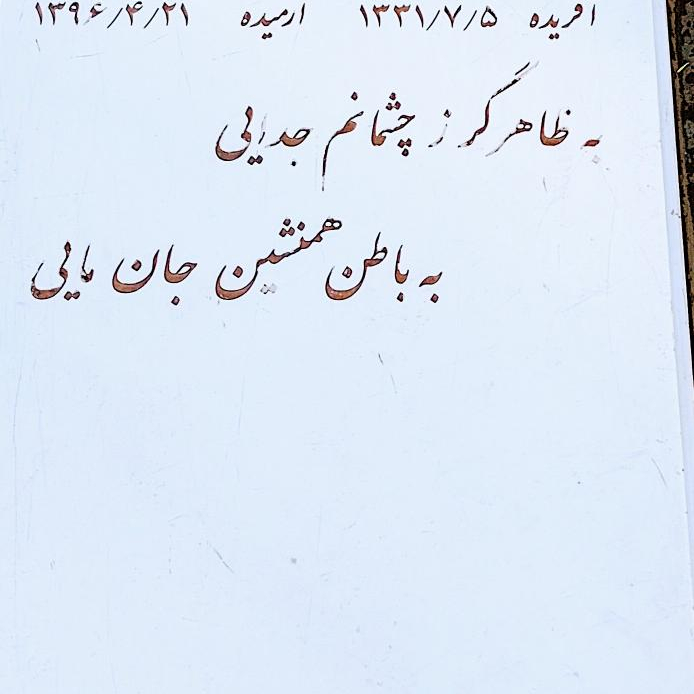 آفریده ۱۳۳۱/۷/۵ آرمیده ۱۳۹۶/۴/۲۱
به ظاهر گر ز چشمانم جدایی
به باطن همنشین جان مایی